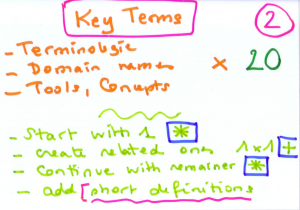 Key Terms
2
- Terminologie
- Domain names
- Tools, Concepts
× 20
- Start with 1 *
- create related ones 1x1 +
- Continue with remainer *
- add [short definitions